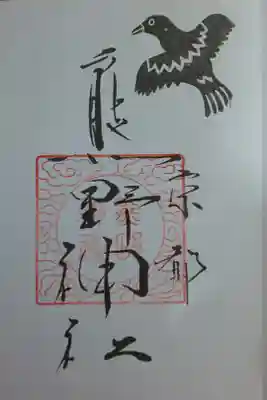 京都
熊野神社